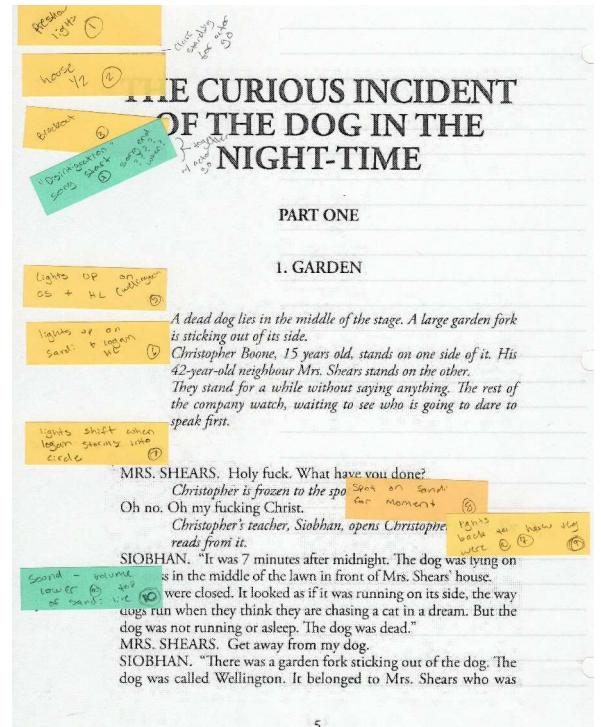 preshow
light ①
house
1/2 ②
close
standing
for actor
go
Blackout
③
"Disintegration"
song start
song end
when?
together
w/ actor
go
THE CURIOUS INCIDENT
OF THE DOG IN THE
NIGHT-TIME
PART ONE
1. GARDEN
lights up on
CS + HL (wellington
⑤
lights up on
Sandi + logan
HL ⑥
A dead dog lies in the middle of the stage. A large garden fork
is sticking out of its side.
Christopher Boone, 15 years old, stands on one side of it. His
42-year-old neighbour Mrs. Shears stands on the other.
They stand for a while without saying anything. The rest of
the company watch, waiting to see who is going to dare to
speak first.
lights shift when
logan storms into
circle ⑦
MRS. SHEARS. Holy fuck. What have you done?
Christopher is frozen to the spo
Spot on Sandi
for moment ⑧
Oh no. Oh my fucking Christ.
Christopher's teacher, Siobhan, opens Christophe
reads from it.
lights
back to how they
were @ ⑦ ⑨
SIOBHAN. "It was 7 minutes after midnight. The dog was lying on
ss in the middle of the lawn in front of Mrs. Shears' house.
were closed. It looked as if it was running on its side, the way
dogs run when they think they are chasing a cat in a dream. But the
dog was not running or asleep. The dog was dead."
Sound - volume
lower @ top
of Sandi line ⑩
MRS. SHEARS. Get away from my dog.
SIOBHAN. "There was a garden fork sticking out of the dog. The
dog was called Wellington. It belonged to Mrs. Shears who was
5